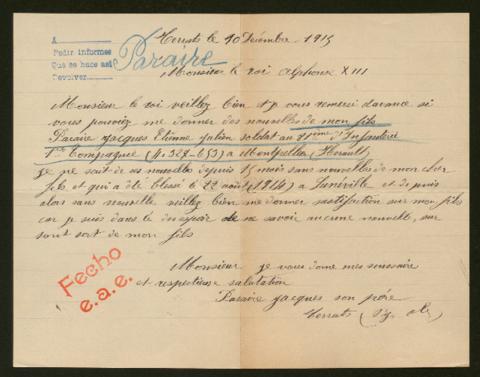 A
Pedir informes
Que se hace así
Devolver
Paraire
Terrats le 10 Décembre 1915
Monsieur le roi Alphonse XIII
Monsieur le roi veillez bien et je vous remerci davance si
vous pouviez me donner des nouvelles de mon fils
Paraire Jacques Etienne Julien soldat au d'Infanterie
1re Compagnie (4.327-653) à Montpellier (Herault)
je ne sait de ses nouvelles depuis 15 mois sans nouvelles de mon cher
fils et qui a été blessé le 22 août (1914) a Lunéville et depuis
alors sans nouvelle veillez bien me donner satisfaction sur mon fils
car je suis dans le desespoir de ne savoir aucune nouvelle, sur
sort de mon fils
Monsieur je vous donne mes
et respectieuse salutation
Paraire Jacques son père
Terrats (Py. Or.)
Fecho
e.a.e.